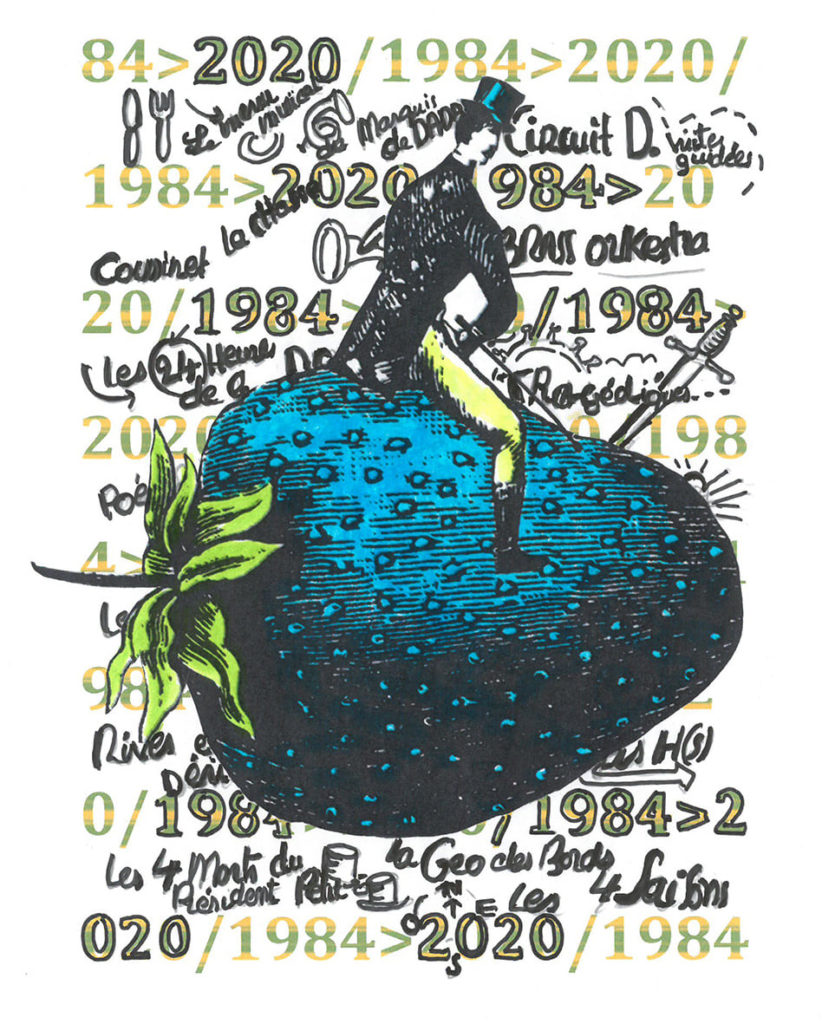 84>2020/1984>2020/
Le menu musical du Marquis de DADA
Circuit D. visites guidées
1984>2020 984>20
Cousinet La
BRASS orkestra
20/1984> /1984>
Les 24 Heures de
Tragédiques...
2020 198
Poé
4>
Le
984
Rives et Déri
H(S)
0/1984> /1984>2
Les 4 Morts du Président Petit
la Géo des Bords
Les 4 Saisons
N
O E
S
020/1984>2020/1984